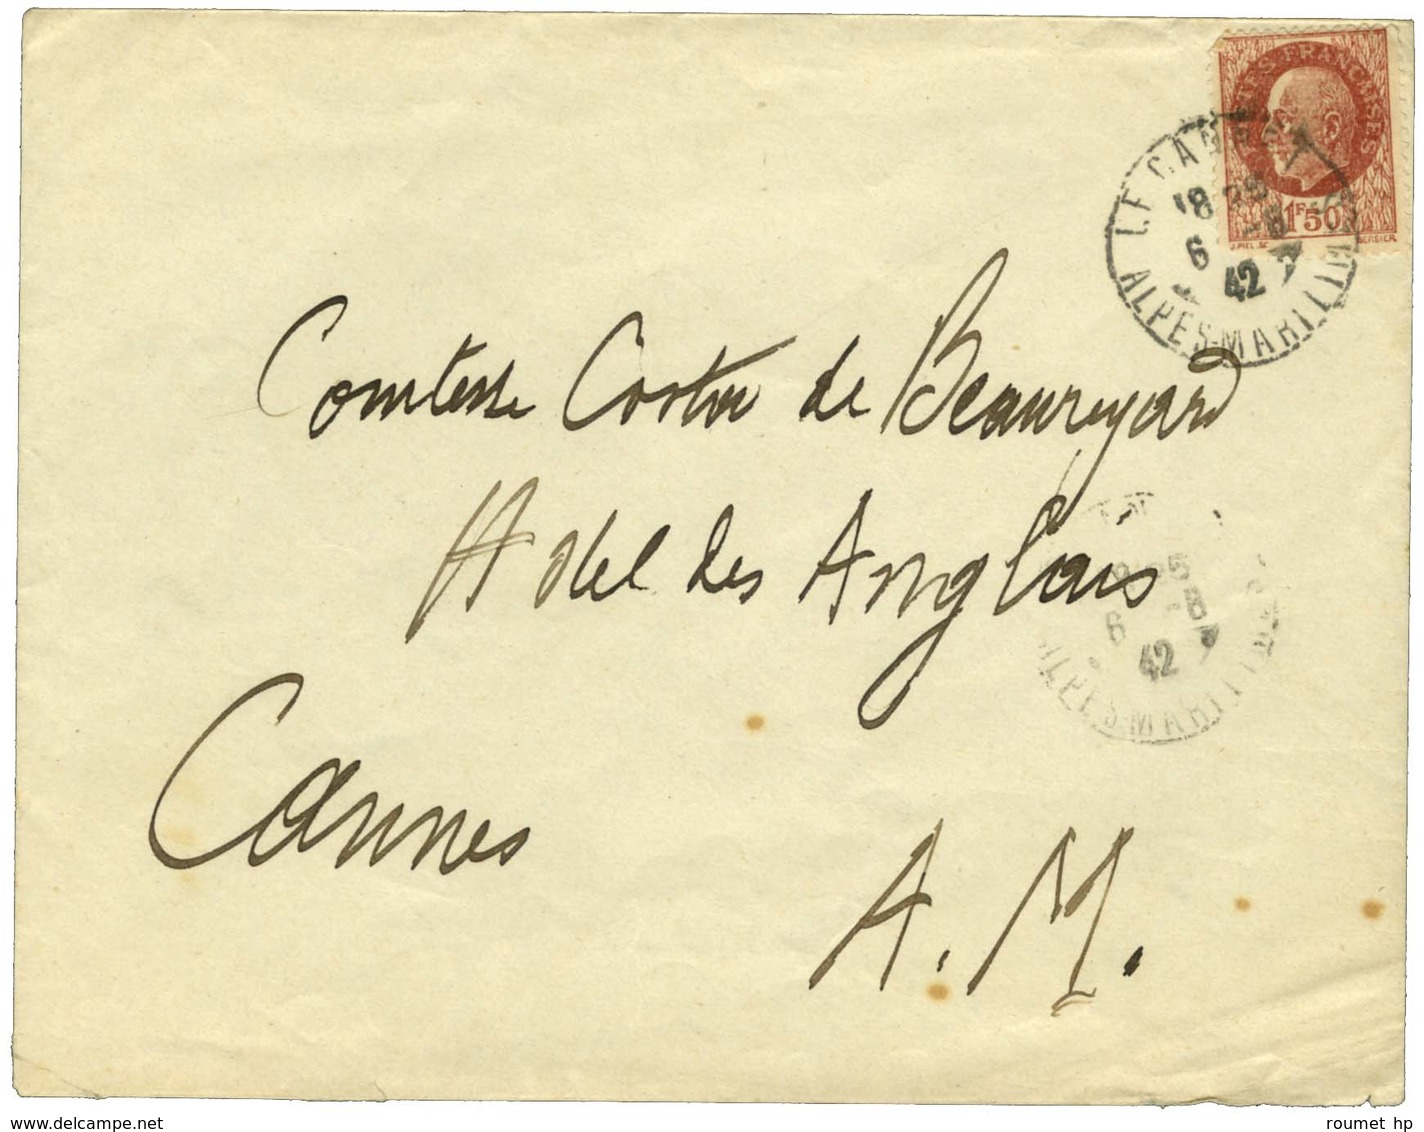 POSTES FRANÇAISES
1F50
LE CANNET
18
6 -8
42
ALPES-MARITIMES
Comtesse Costa de Beauregard
Hôtel des Anglais
6 -8
42
ALPES-MARITIMES
Cannes
A. M.
www.delcampe.net
roumet hp